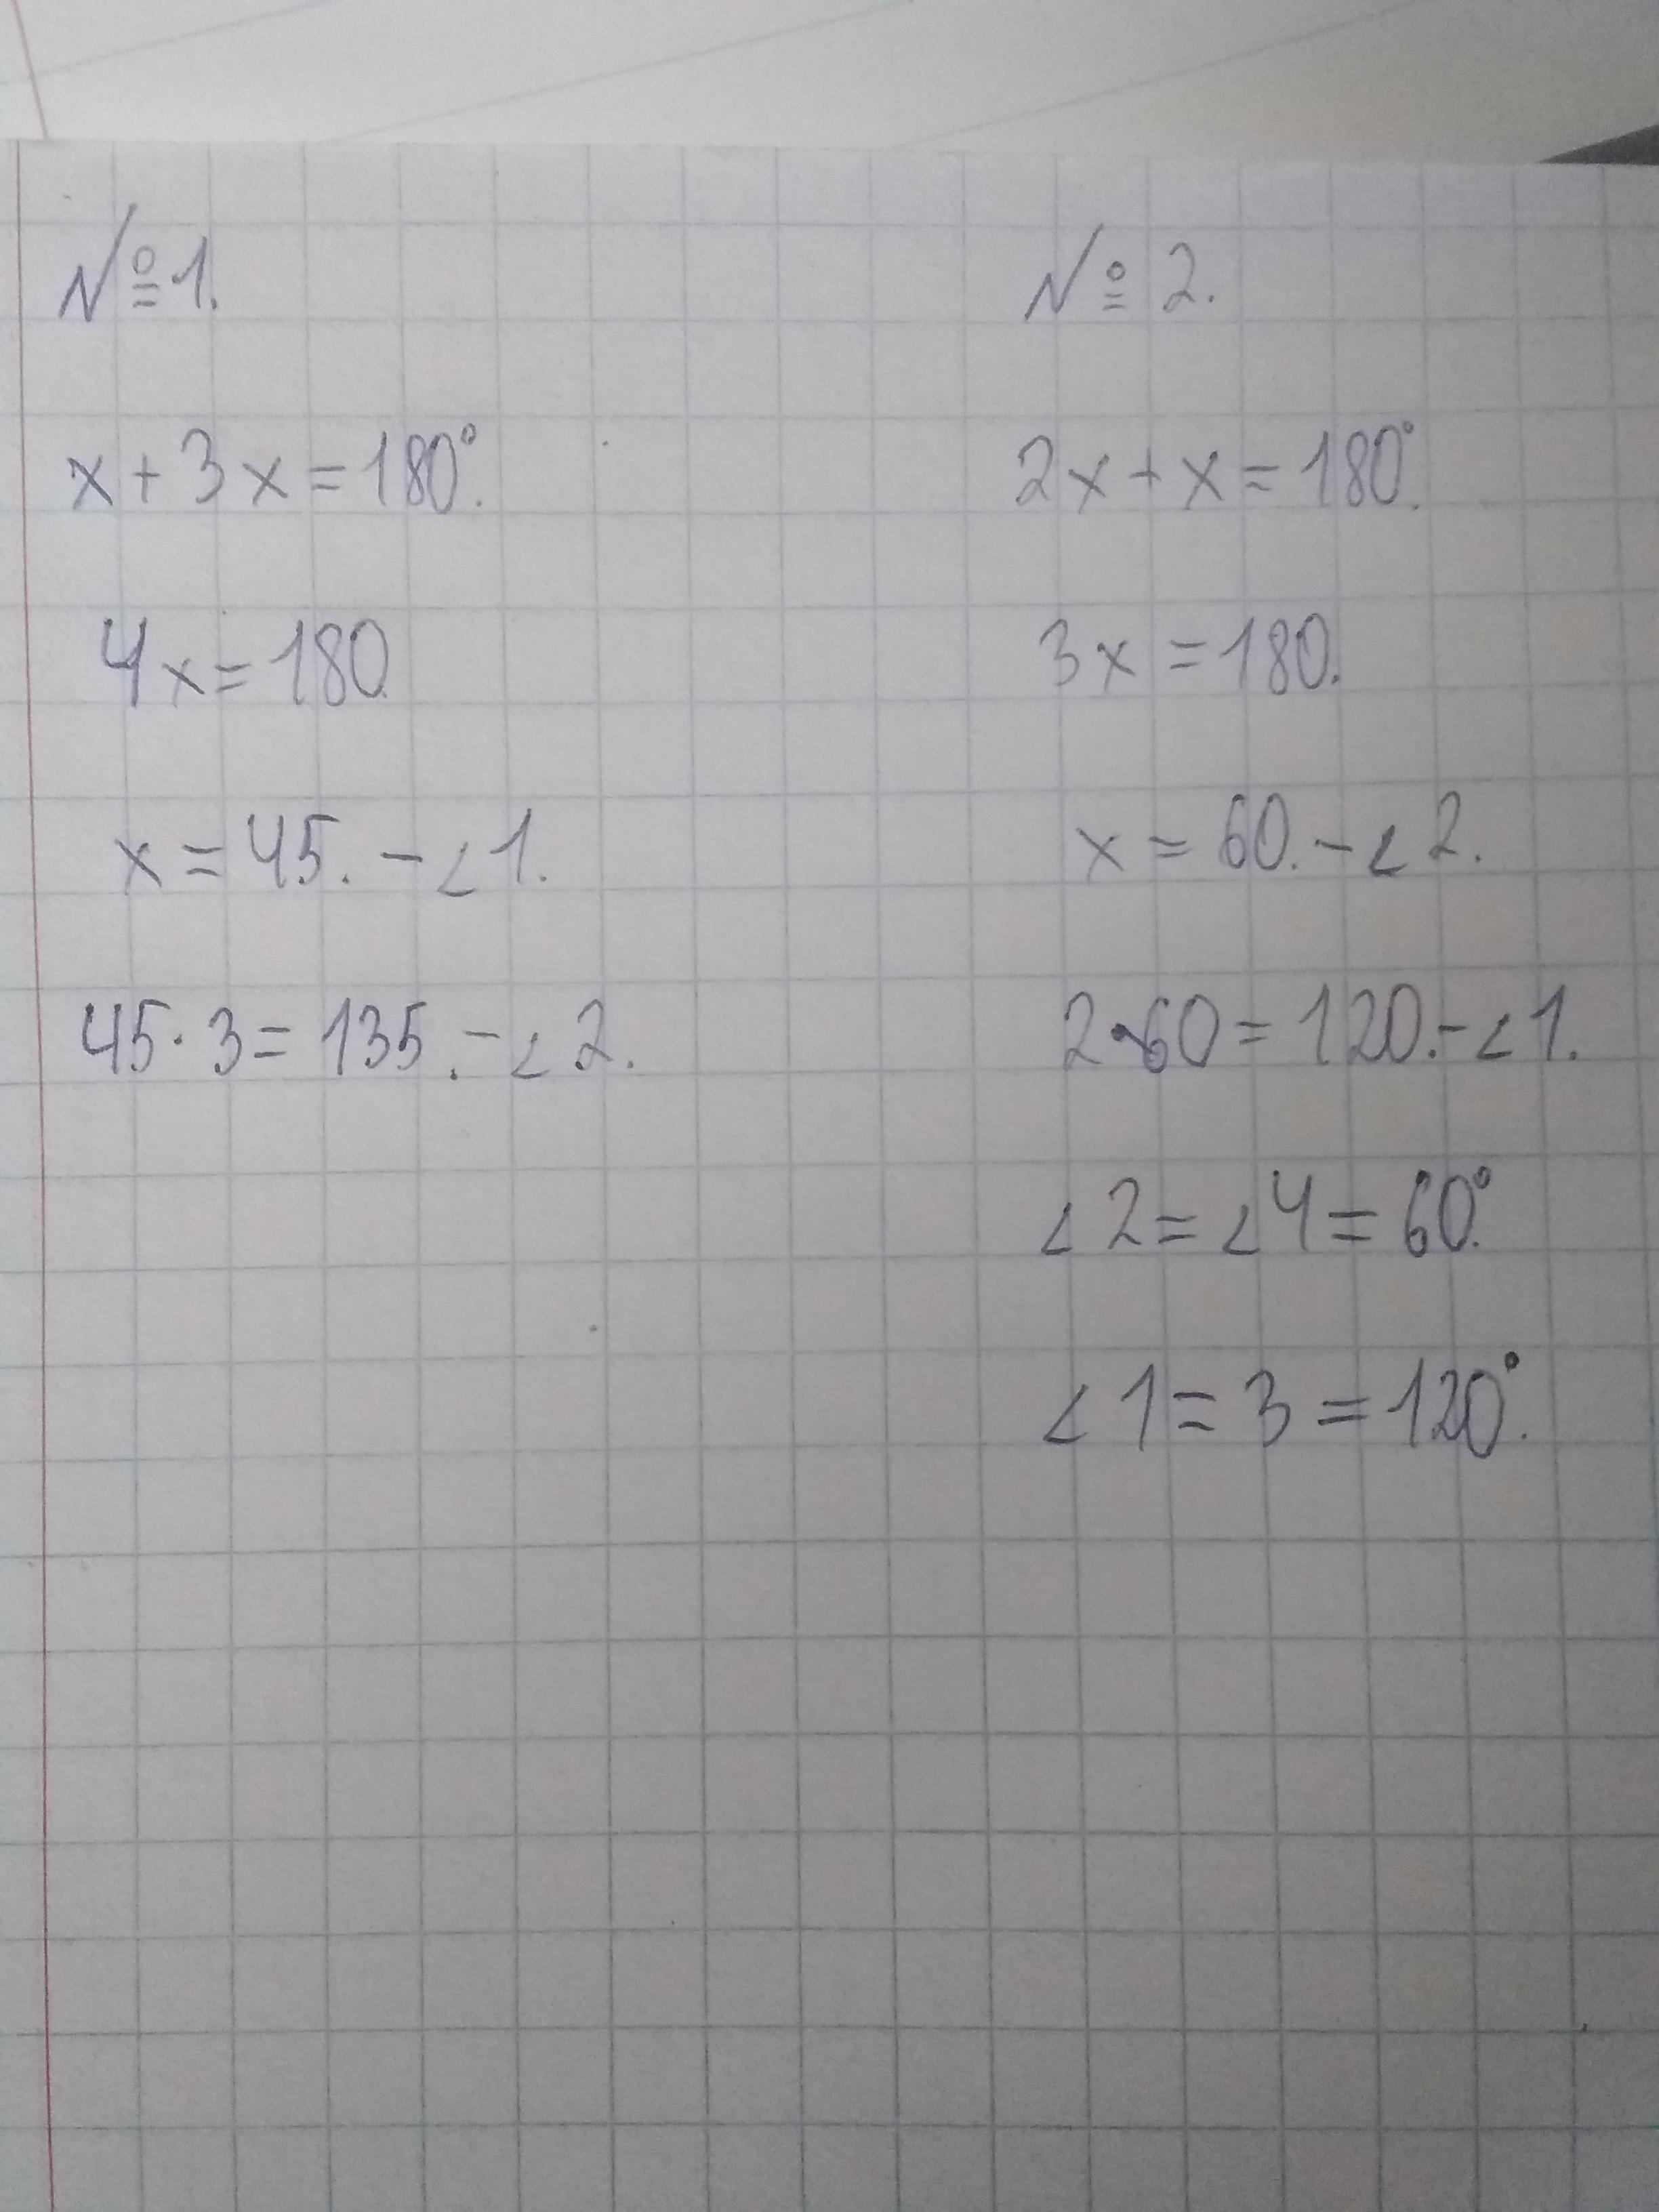 № 1.
x + 3x = 180°.
4x = 180.
x = 45. - ∠1.
45 · 3 = 135. - ∠2.
№ 2.
2x + x = 180°.
3x = 180.
x = 60. - ∠2.
2 · 60 = 120. - ∠1.
∠2 = ∠4 = 60°.
∠1 = 3 = 120°.